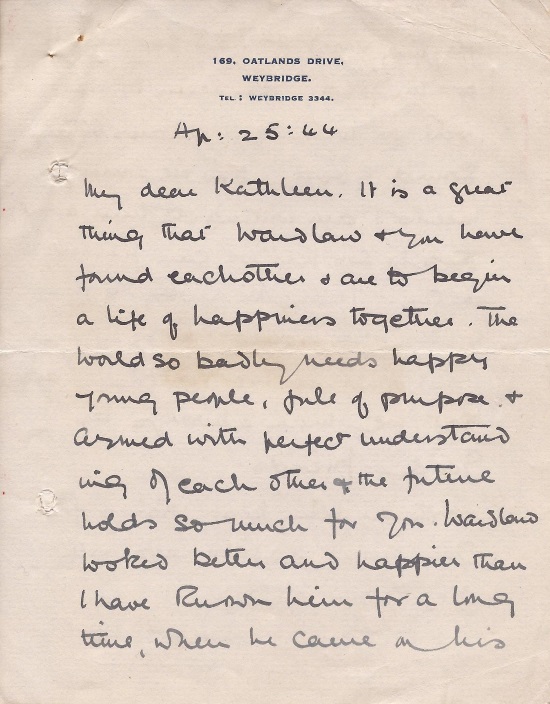 169, OATLANDS DRIVE,
WEYBRIDGE.
TEL: WEYBRIDGE 3344.
Ap: 25: 44
My dear Kathleen. It is a great
thing that Wardlaw & you have
found eachother & are to begin
a life of happiness together. The
world so badly needs happy
young people, full of purpose &
armed with perfect understand
ing of each other & the future
holds so much for you. Wardlaw
looked better and happier than
I have known him for a long
time, when he came on his